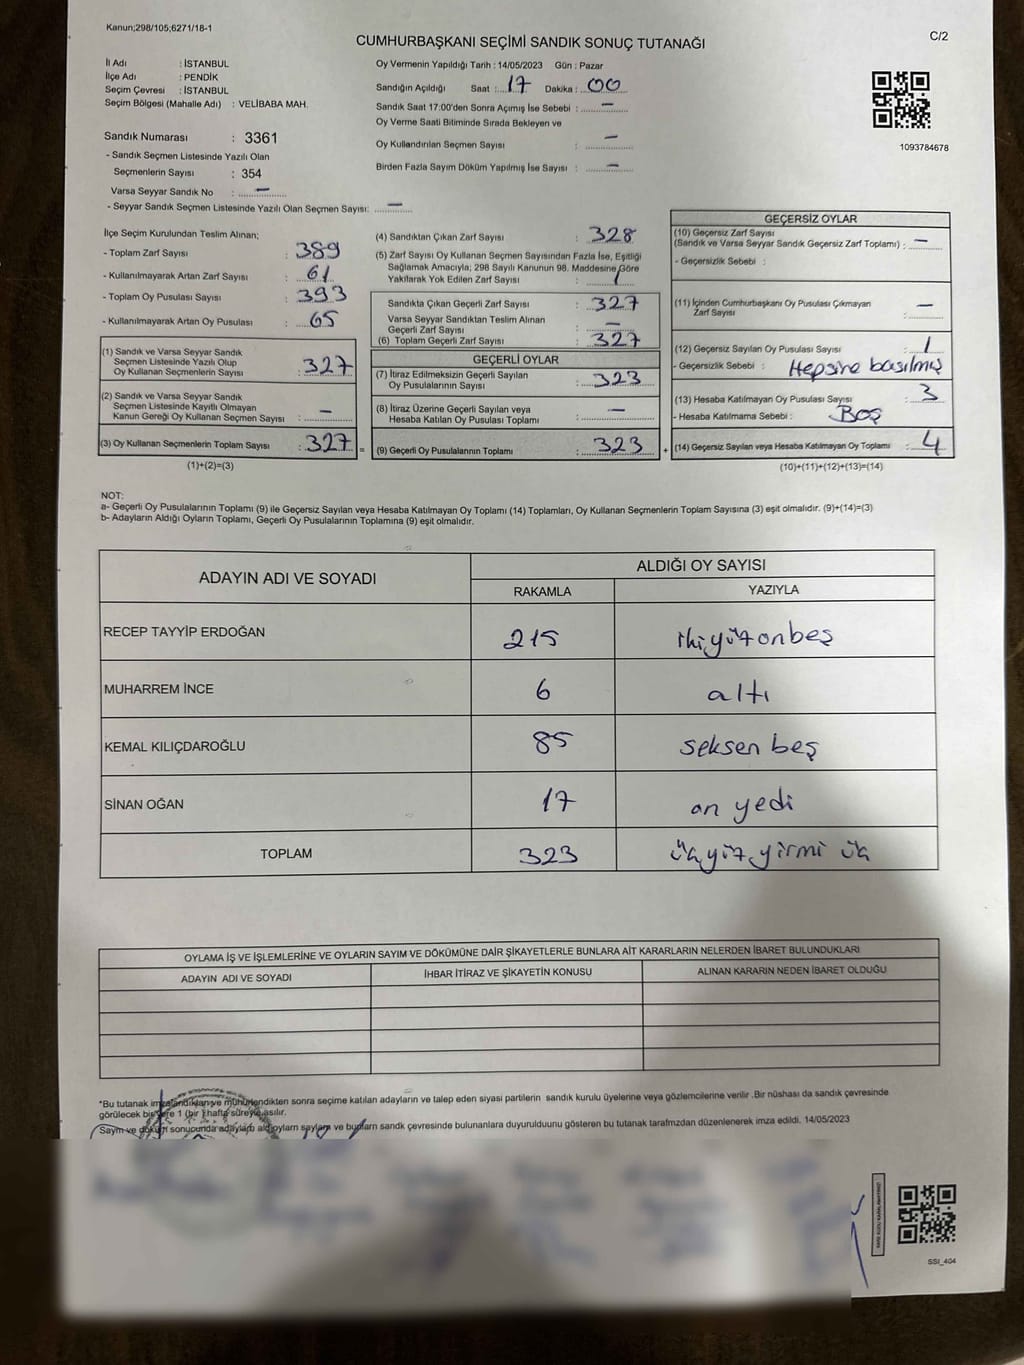 Kanun;298/105;6271/18-1
C/2
CUMHURBAŞKANI SEÇİMİ SANDIK SONUÇ TUTANAĞI
İl Adı : İSTANBUL
İlçe Adı : PENDİK
Seçim Çevresi : İSTANBUL
Seçim Bölgesi (Mahalle Adı) : VELİBABA MAH.
Sandık Numarası : 3361
- Sandık Seçmen Listesinde Yazılı Olan
Seçmenlerin Sayısı : 354
Varsa Seyyar Sandık No : —
- Seyyar Sandık Seçmen Listesinde Yazılı Olan Seçmen Sayısı: —
Oy Vermenin Yapıldığı Tarih : 14/05/2023 Gün : Pazar
Sandığın Açıldığı Saat : 17 Dakika : 00
Sandık Saat 17:00'den Sonra Açımış İse Sebebi : —
Oy Verme Saati Bitiminde Sırada Bekleyen ve
Oy Kullandırılan Seçmen Sayısı : —
Birden Fazla Sayım Döküm Yapılmış İse Sayısı : —
1093784678
İlçe Seçim Kurulundan Teslim Alınan;
- Toplam Zarf Sayısı : 389
- Kullanılmayarak Artan Zarf Sayısı : 61
- Toplam Oy Pusulası Sayısı : 393
- Kullanılmayarak Artan Oy Pusulası : 65
(1) Sandık ve Varsa Seyyar Sandık
Seçmen Listesinde Yazılı Olup
Oy Kullanan Seçmenlerin Sayısı : 327
(2) Sandık ve Varsa Seyyar Sandık
Seçmen Listesinde Kayıtlı Olmayan
Kanun Gereği Oy Kullanan Seçmen Sayısı : —
(3) Oy Kullanan Seçmenlerin Toplam Sayısı : 327
(1)+(2)=(3)
=
(4) Sandıktan Çıkan Zarf Sayısı : 328
(5) Zarf Sayısı Oy Kullanan Seçmen Sayısından Fazla İse, Eşitliği
Sağlamak Amacıyla; 298 Sayılı Kanunun 98. Maddesine Göre
Yakılarak Yok Edilen Zarf Sayısı : 1
Sandıkta Çıkan Geçerli Zarf Sayısı : 327
Varsa Seyyar Sandıktan Teslim Alınan
Geçerli Zarf Sayısı : —
(6) Toplam Geçerli Zarf Sayısı : 327
GEÇERLİ OYLAR
(7) İtiraz Edilmeksizin Geçerli Sayılan
Oy Pusulalarının Sayısı : 323
(8) İtiraz Üzerine Geçerli Sayılan veya
Hesaba Katılan Oy Pusulası Toplamı : —
(9) Geçerli Oy Pusulalarının Toplamı : 323
+
GEÇERSİZ OYLAR
(10) Geçersiz Zarf Sayısı
(Sandık ve Varsa Seyyar Sandık Geçersiz Zarf Toplamı) : —
- Geçersizlik Sebebi :
(11) İçinden Cumhurbaşkanı Oy Pusulası Çıkmayan
Zarf Sayısı : —
(12) Geçersiz Sayılan Oy Pusulası Sayısı : 1
- Geçersizlik Sebebi : Hepsine basılmış
(13) Hesaba Katılmayan Oy Pusulası Sayısı : 3
- Hesaba Katılmama Sebebi : Boş
(14) Geçersiz Sayılan veya Hesaba Katılmayan Oy Toplamı : 4
(10)+(11)+(12)+(13)=(14)
NOT:
a- Geçerli Oy Pusulalarının Toplamı (9) ile Geçersiz Sayılan veya Hesaba Katılmayan Oy Toplamı (14) Toplamları, Oy Kullanan Seçmenlerin Toplam Sayısına (3) eşit olmalıdır. (9)+(14)=(3)
b- Adayların Aldığı Oyların Toplamı, Geçerli Oy Pusulalarının Toplamına (9) eşit olmalıdır.
ADAYIN ADI VE SOYADI ALDIĞI OY SAYISI
RAKAMLA YAZIYLA
RECEP TAYYİP ERDOĞAN 215 ikiyüz onbeş
MUHARREM İNCE 6 altı
KEMAL KILIÇDAROĞLU 85 seksen beş
SİNAN OĞAN 17 on yedi
TOPLAM 323 üçyüz yirmi üç
OYLAMA İŞ VE İŞLEMLERİNE VE OYLARIN SAYIM VE DÖKÜMÜNE DAİR ŞİKAYETLERLE BUNLARA AİT KARARLARIN NELERDEN İBARET BULUNDUKLARI
ADAYIN ADI VE SOYADI İHBAR İTİRAZ VE ŞİKAYETİN KONUSU ALINAN KARARIN NEDEN İBARET OLDUĞU
*Bu tutanak imzalandıktan ve mühürlendikten sonra seçime katılan adayların ve talep eden siyasi partilerin sandık kurulu üyelerine veya gözlemcilerine verilir .Bir nüshası da sandık çevresinde
görülecek bir yere 1 (bir ) hafta süreyle asılır.
Sayım ve döküm sonucunda adayların aldıyların sayıları ve bunların sandık çevresinde bulunanlara duyurulduunu gösteren bu tutanak tarafmzdan düzenlenerek imza edildi. 14/05/2023
SSI_404